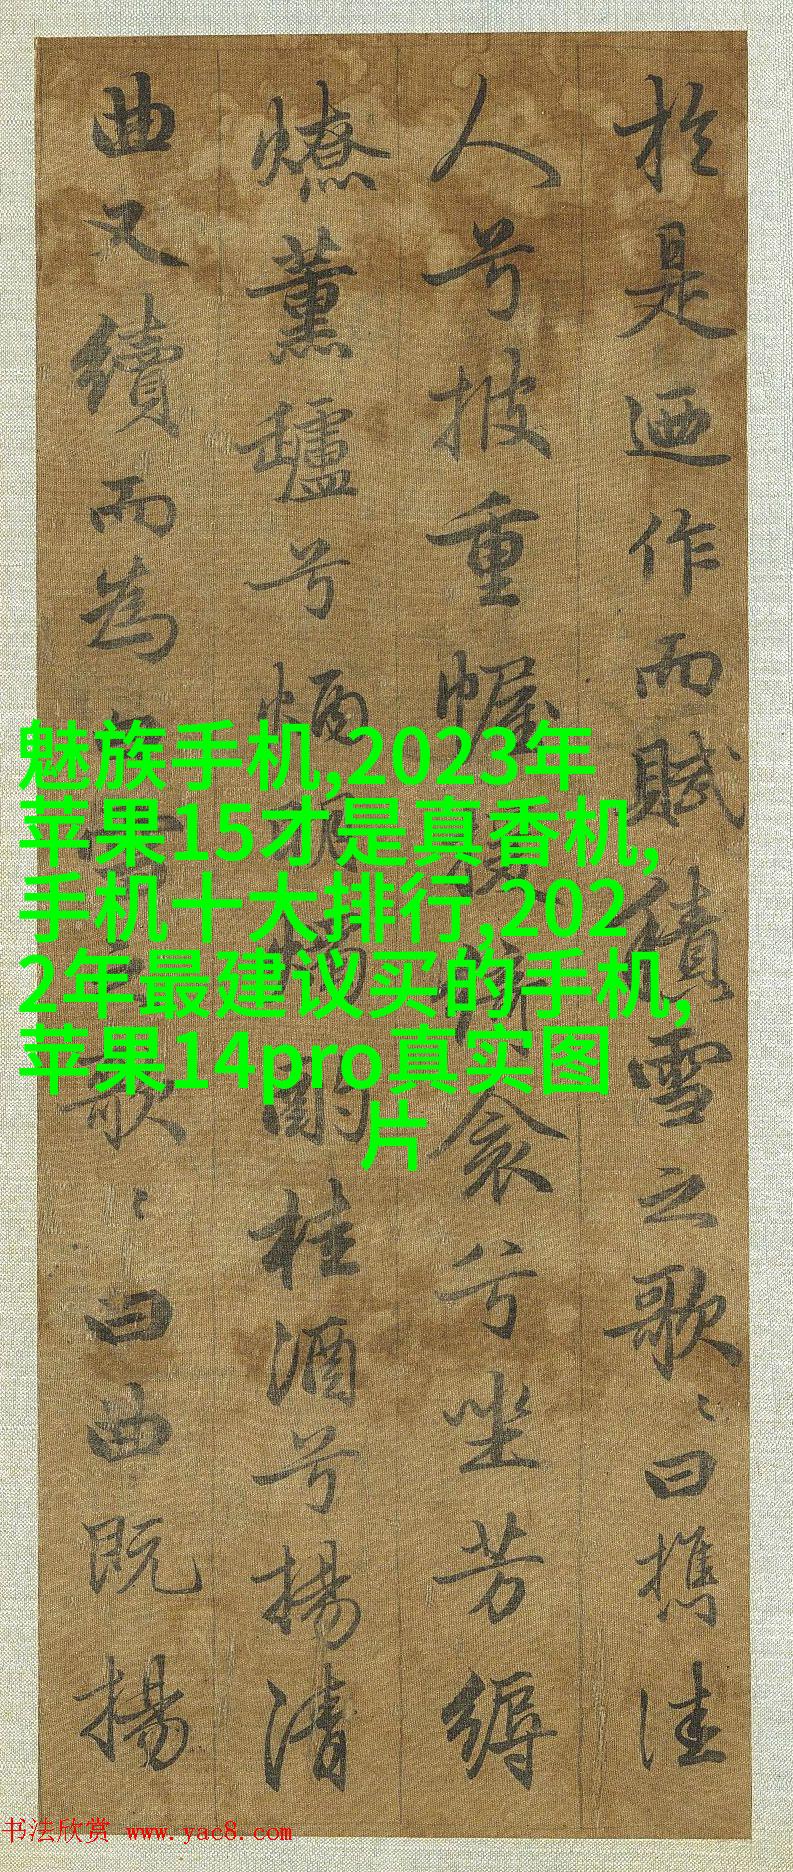 於是迺作而賦積雪之歌〻曰攜佳
人兮披重幄援綺衾兮坐芳縟
燎薰罏兮酌桂酒兮揚清
曲又續而為歌〻曰曲既揚
魅族手机,2023年
苹果15才是真香机,
手机十大排行,202
2年最建议买的手机,
苹果14pro真实图
片
书法欣赏 www.yac8.com